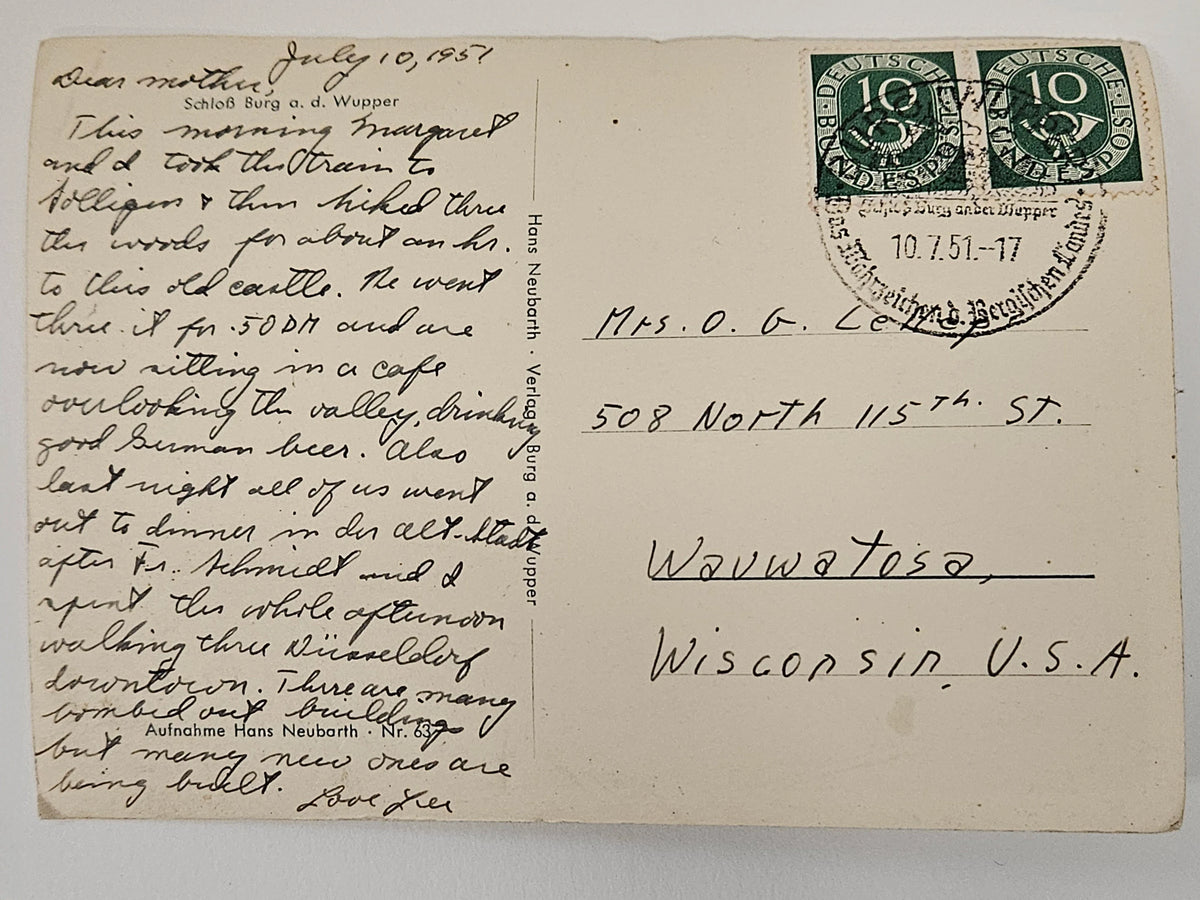 July 10, 1951
Dear mother,
Schloß Burg a. d. Wupper
This morning Margaret
and I took the train to
Solligen & then hiked thru
the woods for about an hr.
to this old castle. We went
thru it for .50 DM and are
now sitting in a cafe
overlooking the valley, drinking
good German beer. Also
last night all of us went
out to dinner in der Alt-Stadt
after Fr. Schmidt and I
spent the whole afternoon
walking thru Düsseldorf
downtown. There are many
bombed out buildings
Aufnahme Hans Neubarth · Nr. 637
but many new ones are
being built.
Love Lee
Hans Neubarth · Verlag Burg a. d. Wupper
10 DEUTSCHE BUNDESPOST
10 DEUTSCHE BUNDESPOST
Schloß Burg an der Wupper
10.7.51.--17
Das Wahrzeichen d. Bergischen Landes
Mrs. O. G.
508 North 115th. St.
Wauwatosa,
Wisconsin, U.S.A.